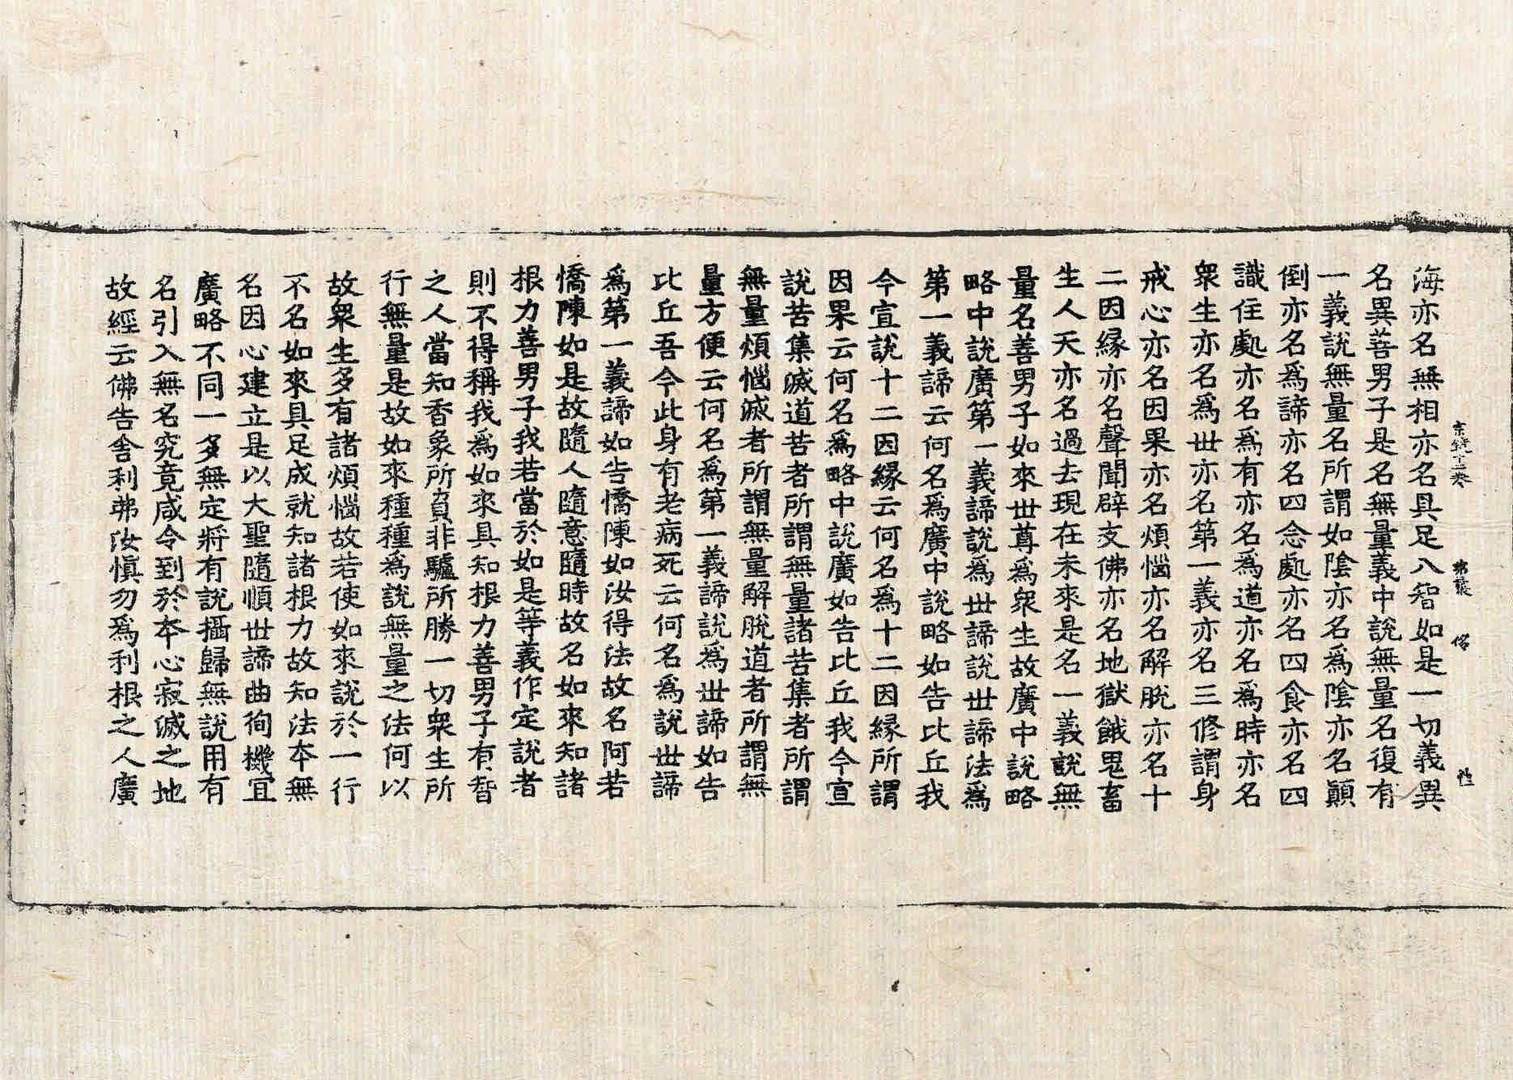 海亦名無相亦名具足八智如是一切義異
名異善男子是名無量義中說無量名復有
一義說無量名所謂如陰亦名爲陰亦名顚
倒亦名爲諦亦名四念處亦名四食亦名四
識住處亦名爲有亦名爲道亦名爲時亦名
衆生亦名爲世亦名第一義亦名三修謂身
戒心亦名因果亦名煩惱亦名解脫亦名十
二因緣亦名聲聞辟支佛亦名地獄餓鬼畜
生人天亦名過去現在未來是名一義說無
量名善男子如來世尊爲衆生故廣中說略
略中說廣第一義諦說爲世諦說世諦法爲
第一義諦云何名爲廣中說略如告比丘我
今宣說十二因緣云何名爲十二因緣所謂
因果云何名爲略中說廣如告比丘我今宣
說苦集滅道苦者所謂無量諸苦集者所謂
無量煩惱滅者所謂無量解脫道者所謂無
量方便云何名爲第一義諦說爲世諦如告
比丘吾今此身有老病死云何名爲說世諦
爲第一義諦如告憍陳如汝得法故名阿若
憍陳如是故隨人隨意隨時故名如來知諸
根力善男子我若當於如是等義作定說者
則不得稱我爲如來具知根力善男子有智
之人當知香象所負非驢所勝一切衆生所
行無量是故如來種種爲說無量之法何以
故衆生多有諸煩惱故若使如來說於一行
不名如來具足成就知諸根力故知法本無
名因心建立是以大聖隨順世諦曲徇機宜
廣略不同一多無定將有說攝歸無說用有
名引入無名究竟咸令到於本心寂滅之地
故經云佛告舍利弗汝愼勿爲利根之人廣